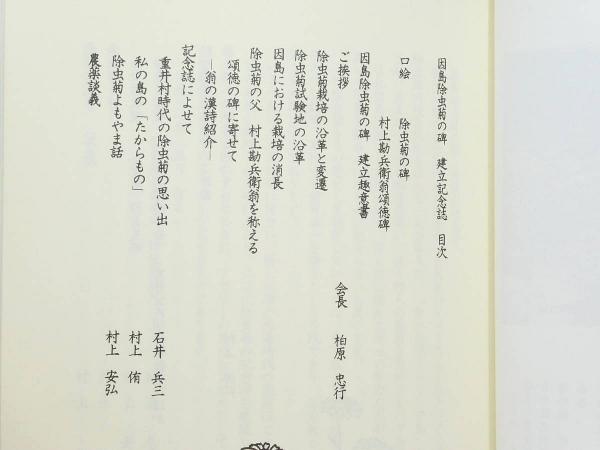 因島除虫菊の碑 建立記念誌 目次
口絵 除虫菊の碑
村上勘兵衛翁頌徳碑
因島除虫菊の碑 建立趣意書
ご挨拶 会長 柏原 忠行
除虫菊栽培の沿革と変遷
除虫菊試験地の沿革
因島における栽培の消長
除虫菊の父 村上勘兵衛翁を称える
頌徳の碑に寄せて
―翁の漢詩紹介―
記念誌によせて
重井村時代の除虫菊の思い出 石井 兵三
私の島の「たからもの」 村上 侑
除虫菊よもやま話 村上 安弘
農楽談義